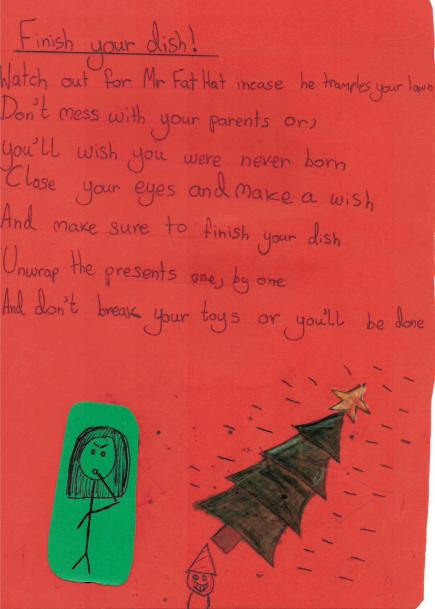 Finish your dish!
Watch out for Mr Fat Hat incase he tramples your lawn
Don't mess with your parents or,
you'll wish you were never born
Close your eyes and make a wish
And make sure to finish your dish
Unwrap the presents one, by one
And don't break your toys or you'll be done